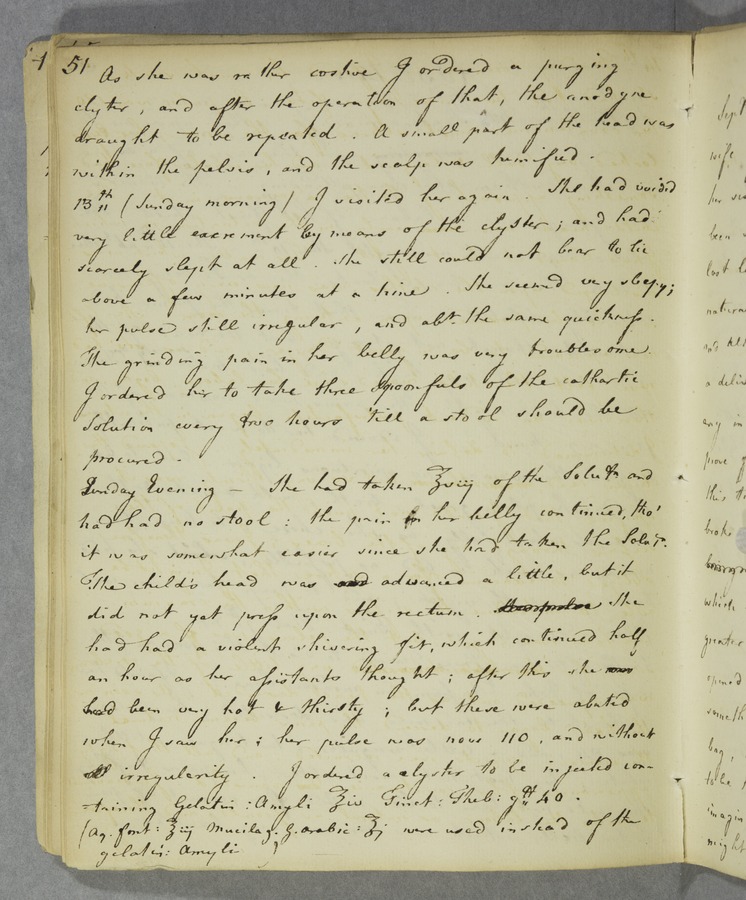 51 As she was rather costive I ordered a purging
clyter, and after the operation of that, the anodyne
draught to be repeated. A small part of the head was
within the pelvis, and the scalp was tumified.
13th (Sunday morning) I visited her again. She had voided
very little excrement by means of the clyster; and had
scarcely slept at all. She still could not bear to lie
above a few minutes at a time. She seemed very sleepy;
her pulse still irregular, and abt. the same quickness.
The grinding pain in her belly was very troublesome.
I ordered her to take three spoonfuls of the cathartic
Solution every two hours 'till a stool should be
procured.
Sunday Evening — She had taken ℥viij of the Solutn and
had had no stool: the pain in her belly continued, tho'
it was somewhat easier since she had taken the Solun.
The child's head was advanced a little, but it
did not yet press upon the rectum. She
had had a violent shivering fit, which continued half
an hour as her assistants thought; after this she
had been very hot & thirsty; but these were abated
when I saw her; her pulse was now 110, and without
irregularity. I ordered a clyster to be injected con-
-taining Gelatin: Amyli ℥iv Tinct: Theb: gtt 40.
(Aq. font: ℥iij Mucilag. G. arabic: ℥j were used instead of the
gelatin: Amyli)